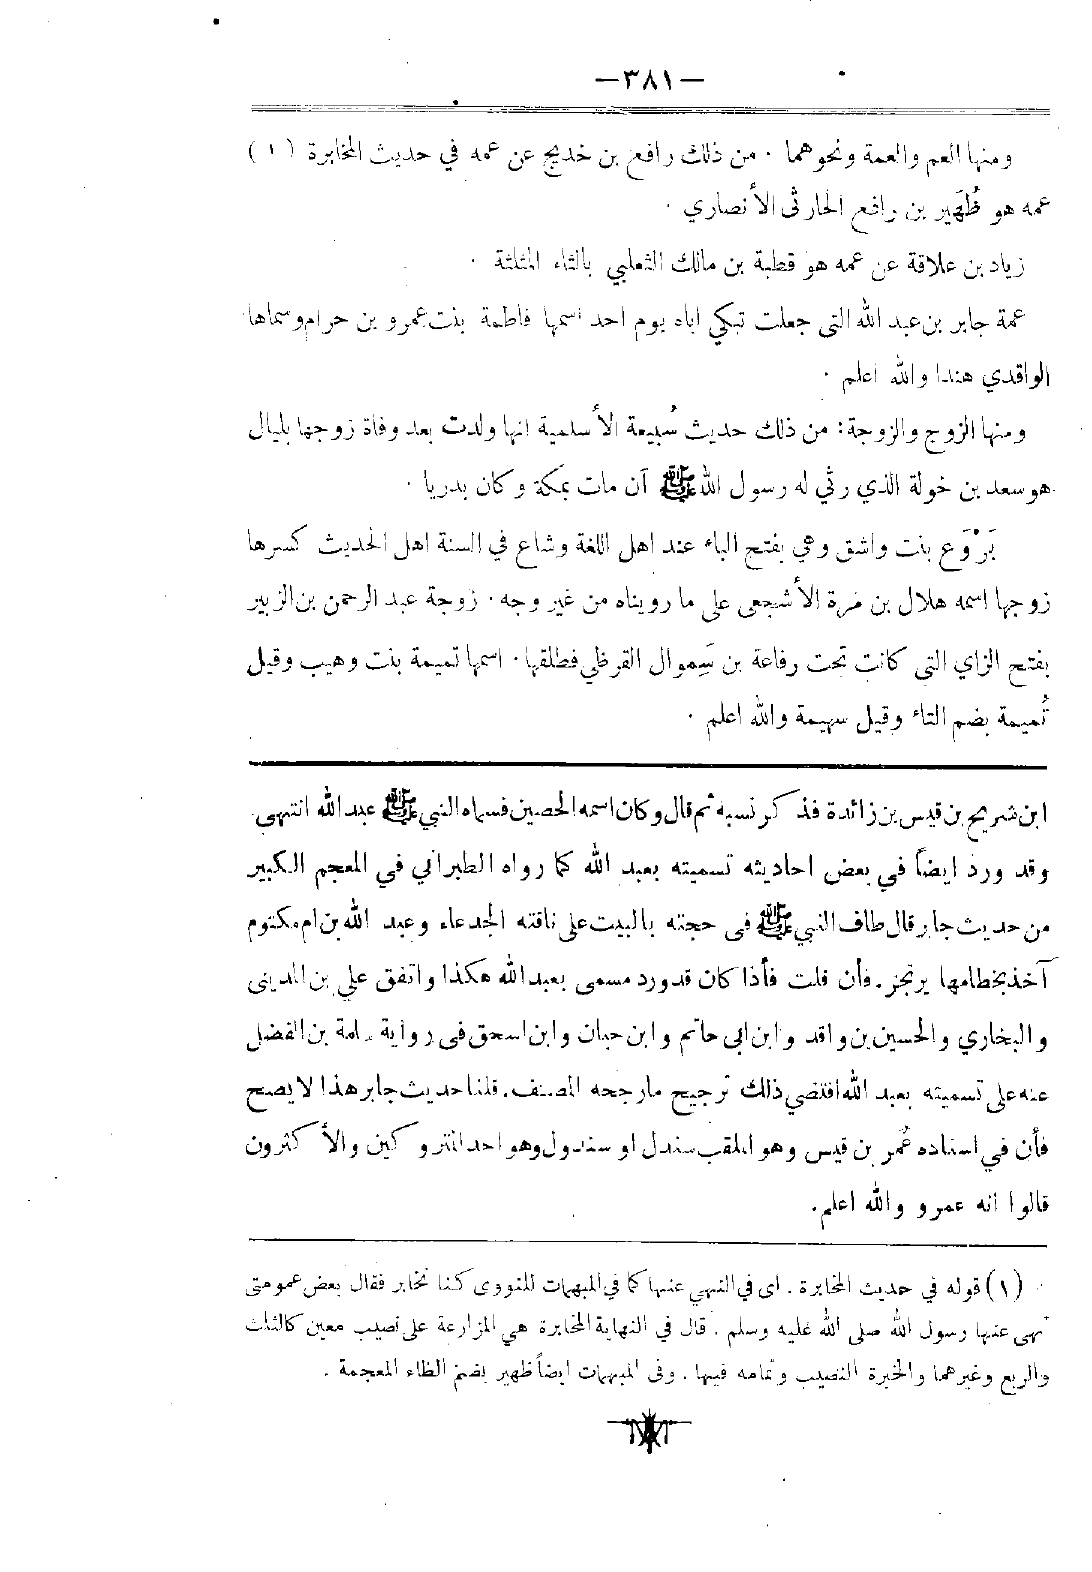 —٣٨١—
ومنها العم والعمة ونحوهما . من ذلك رافع بن خديج عن عمه في حديث المخابرة (١)
عمه هو ظُهَير بن رافع الحارثى الأنصاري .
زياد بن علاقة عن عمه هو قطبة بن مالك الثعلبي بالثاء المثلثة .
عمة جابر بن عبد الله التى جعلت تبكي اباه يوم احد اسمها فاطمة بنت عمرو بن حرام وسماها
الواقدي هندا والله اعلم .
ومنها الزوج والزوجة: من ذلك حديث سُبيعة الأسلمية انها ولدت بعد وفاة زوجها بليال
هو سعد بن خولة الذي رثي له رسول الله ﷺ أن مات بمكة وكان بدريا .
بَرْوَع بنت واشق وهي بفتح الباء عند اهل اللغة وشاع في السنة اهل الحديث كسرها
زوجها اسمه هلال بن مرة الأشجعى على ما رويناه من غير وجه . زوجة عبد الرحمن بن الزبير
بفتح الزاي التى كانت تحت رفاعة بن سَموال القرظي فطلقها . اسمها تميمة بنت وهيب وقيل
تُميمة بضم التاء وقيل سهيمة والله اعلم .
ابن شريح بن قيس بن زائدة فذكر نسبه ثم قال وكان اسمه الحصين فسماه النبي ﷺ عبد الله انتهى.
وقد ورد ايضاً في بعض احاديثه تسميته بعبد الله كما رواه الطبراني في المعجم الكبير
من حديث جابر قال طاف النبي ﷺ فى حجته بالبيت على ناقته الجدعاء وعبد الله بن ام مكتوم
آخذ بخطامها يرتجز. فأن قلت فأذا كان قد ورد مسمى بعبد الله هكذا واتفق علي بن المدينى
والبخاري والحسين بن واقد وابن ابي حاتم وابن حبان وابن اسحق فى رواية سلمة بن الفضل
عنه على تسميته بعبد الله اقتضي ذلك ترجيح ما رجحه المصنف. قلنا حديث جابر هذا لا يصح
فأن في اسناده عُمر بن قيس وهو الملقب سندل او سندول وهو احد المتروكين والأكثرون
قالوا انه عمرو والله اعلم.
(١) قوله في حديث المخابرة . اى في النهي عنها كما في المبهمات للنووى كنا نخابر فقال بعض عمومتى
نهى عنها رسول الله صلى الله عليه وسلم . قال في النهاية المخابرة هي المزارعة على نصيب معين كالثلث
والربع وغيرهما والخبرة النصيب وتمامه فيها . وفى المبهمات ايضاً ظهير بضم الظاء المعجمة .